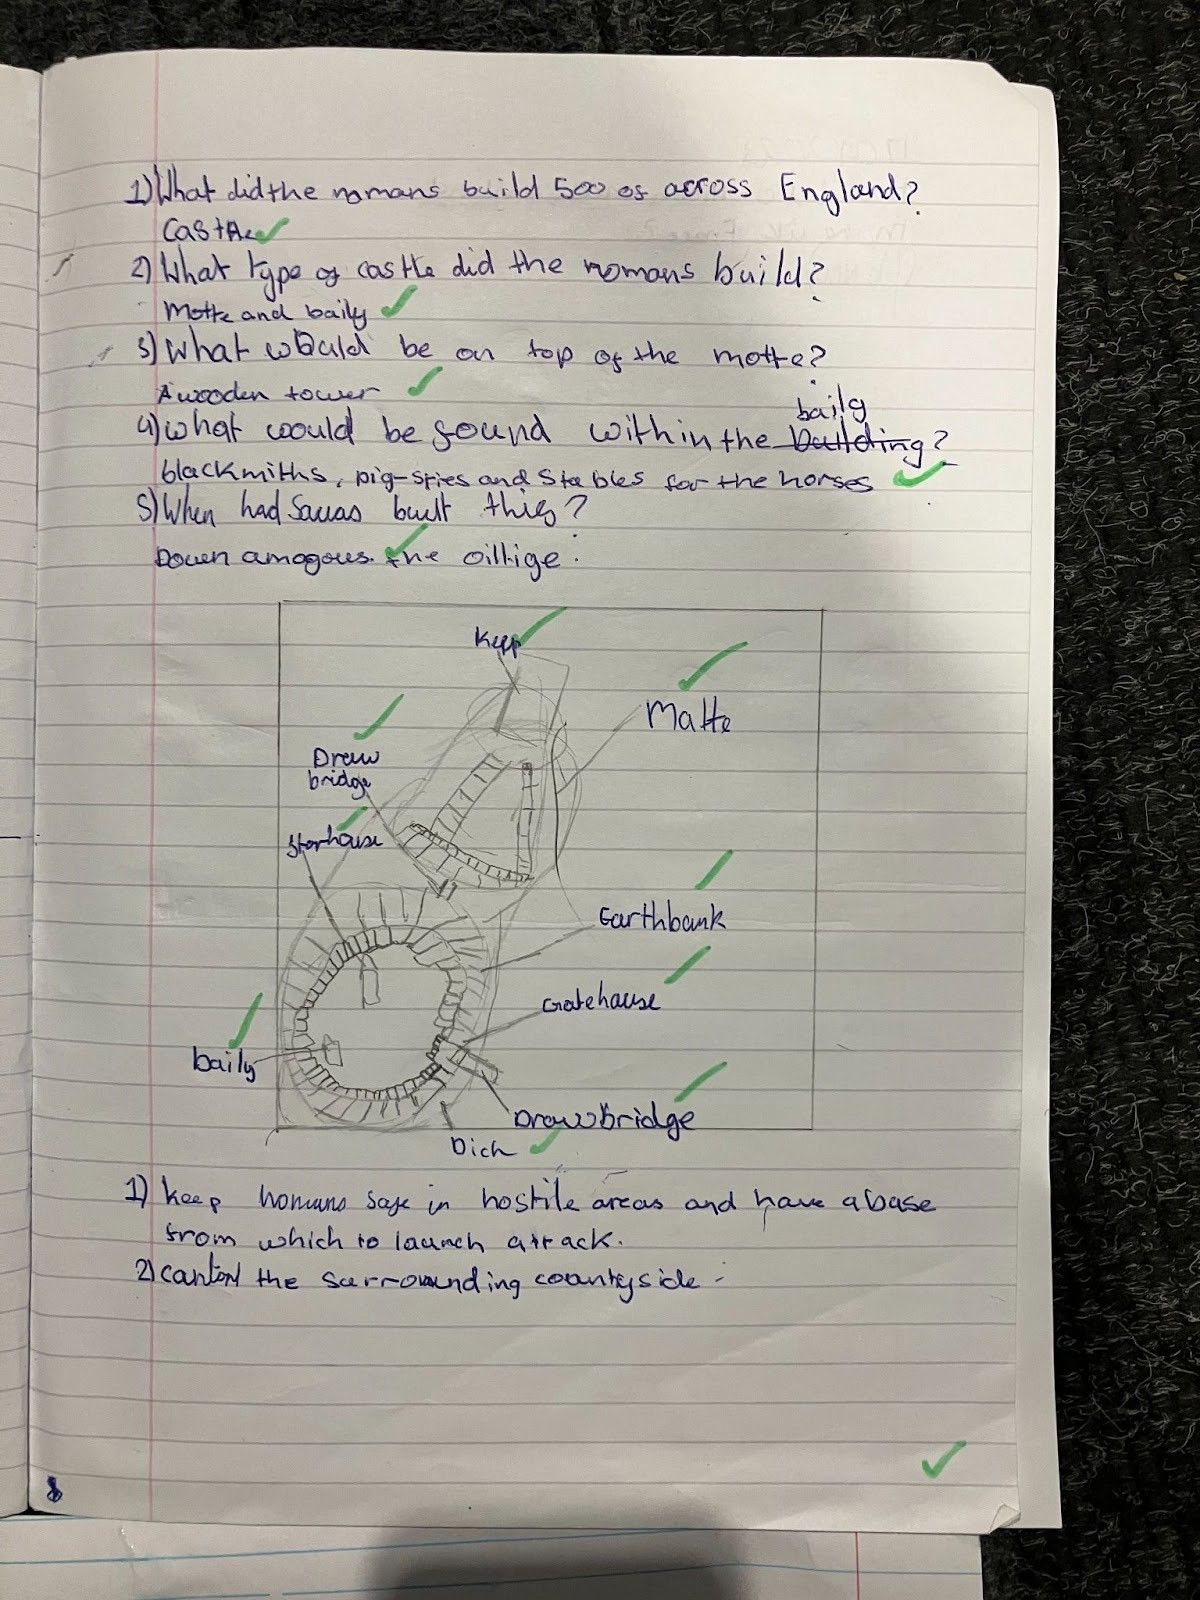 1) What did the romans build 500 of across England?
Castle
2) What type of castle did the romans build?
Motte and baily
3) What would be on top of the motte?
A wooden tower
baily
4) what would be found within the building?
blackmiths, pig-sties and stables for the horses
5) When had built this?
Down the
Keep
Matte
Draw
bridge
Storhouse
Earthbank
Gatehouse
baily
Drawbridge
Dich
1) keep safe in hostile areas and have a base
from which to launch attack.
2) the surrounding
8